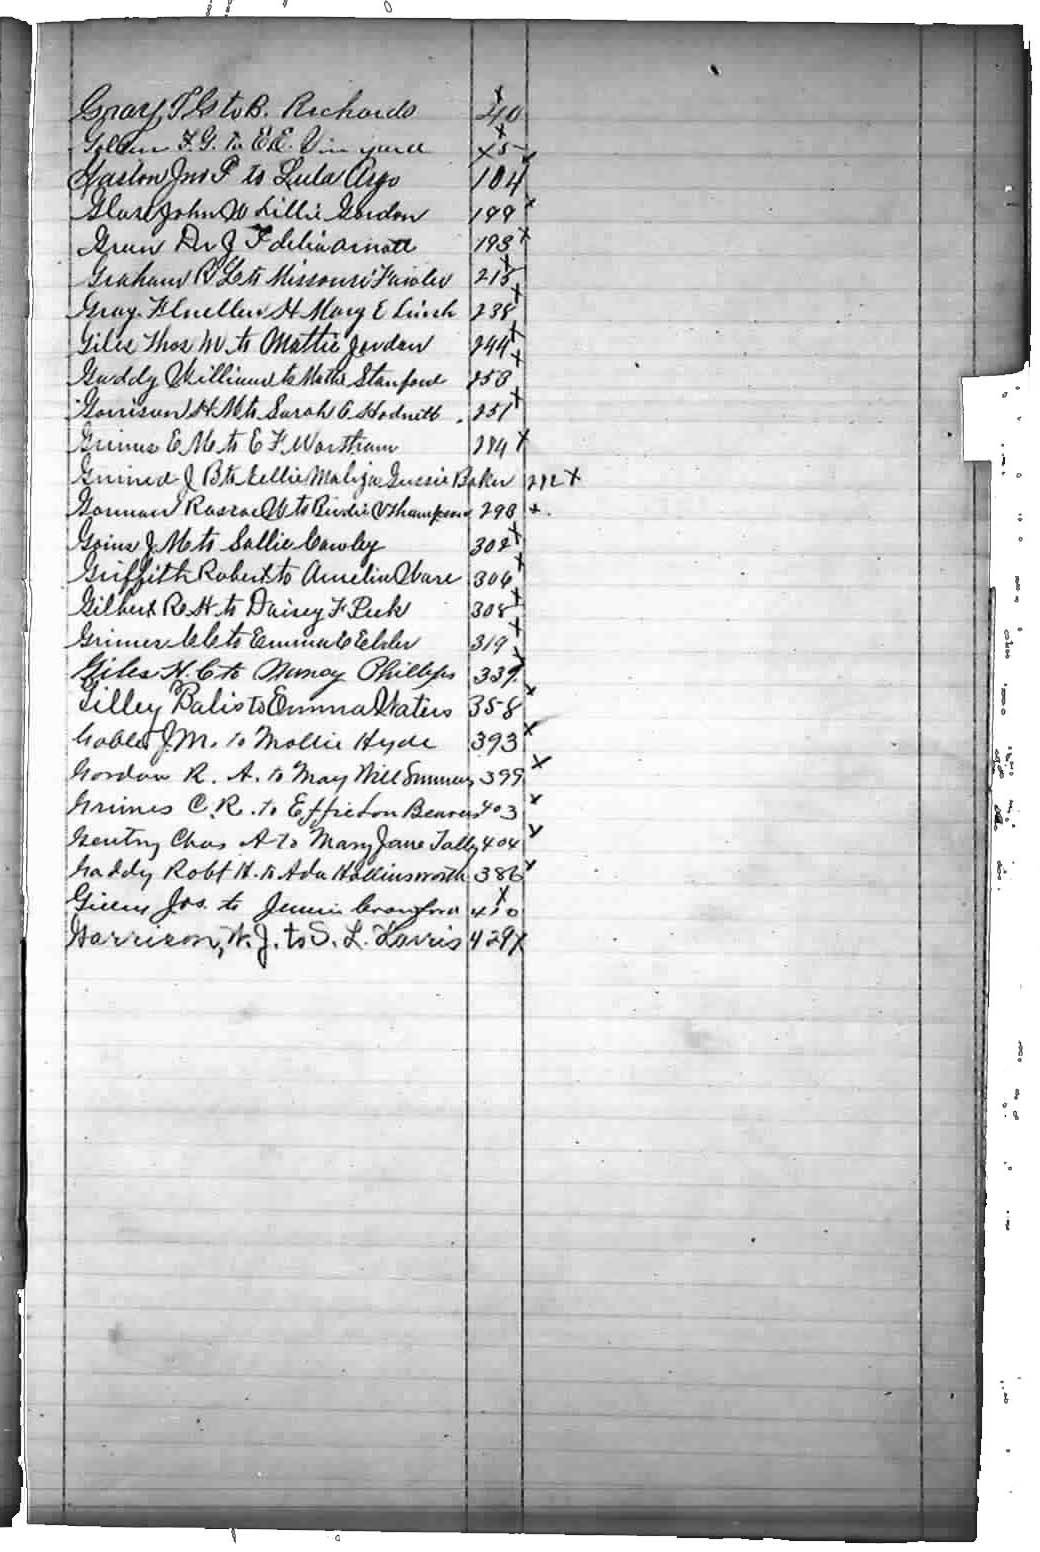 Gray, T G to B. Richards 40 x
Golden F. G. to E. E. Vinyard x
Gaston Jno P to Lula Argo 104 x
John W Lillie Gordon 199 x
Green Dr J F delia arnott 193 x
Graham R L to Missouri Fowler 215 x
Gray Fluellen H Mary E Linch 238 x
Giles Thos W. to Mattie Jordan 244 x
Gaddy William to Stanford 253 x
Garrison H M to Sarah C Hodnett 251 x
Grimes E M to E F Wortham x
J B to Gussie Baker x
Gorman W to Birdie V Thompson 298 x
Goins J M to Sallie Cowley 302 x
Griffith Robert to Amelia Ware 304 x
Gilbert R H to Daisey F Peek 308 x
Grimes to Emma C 319 x
Giles H. C to Nancy Phillips 339 x
Gilley Balis to Emma Waters 358 x
J. M. to Mollie Hyde 393 x
Gordon R. A. to May Will 399 x
Grimes C. R. to Effie Beavers 403 x
Gentry Chas A to Mary Jane Tally 404 x
Gaddy Robt H. to Ada Hollinsworth 386 x
Jos. to Jennie Crawford 410 x
Garrison, W. J. to S. L. 429 x